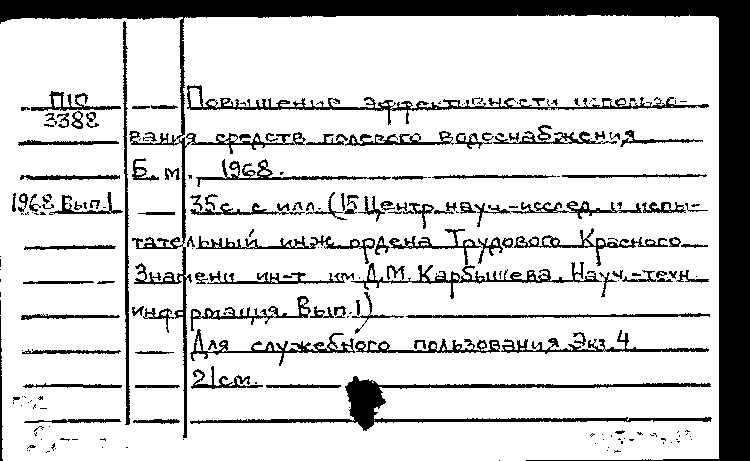 П10
3388
Повышение эффективности использо-
вания средств полевого водоснабжения
Б. м., 1968.
1968 Вып.1
35с. с илл. (15 Центр. науч.-исслед. и испы-
тательный инж. ордена Трудового Красного
Знамени ин-т им. Д.М. Карбышева. Науч.-техн.
информация. Вып.1)
Для служебного пользования Экз. 4.
21см.